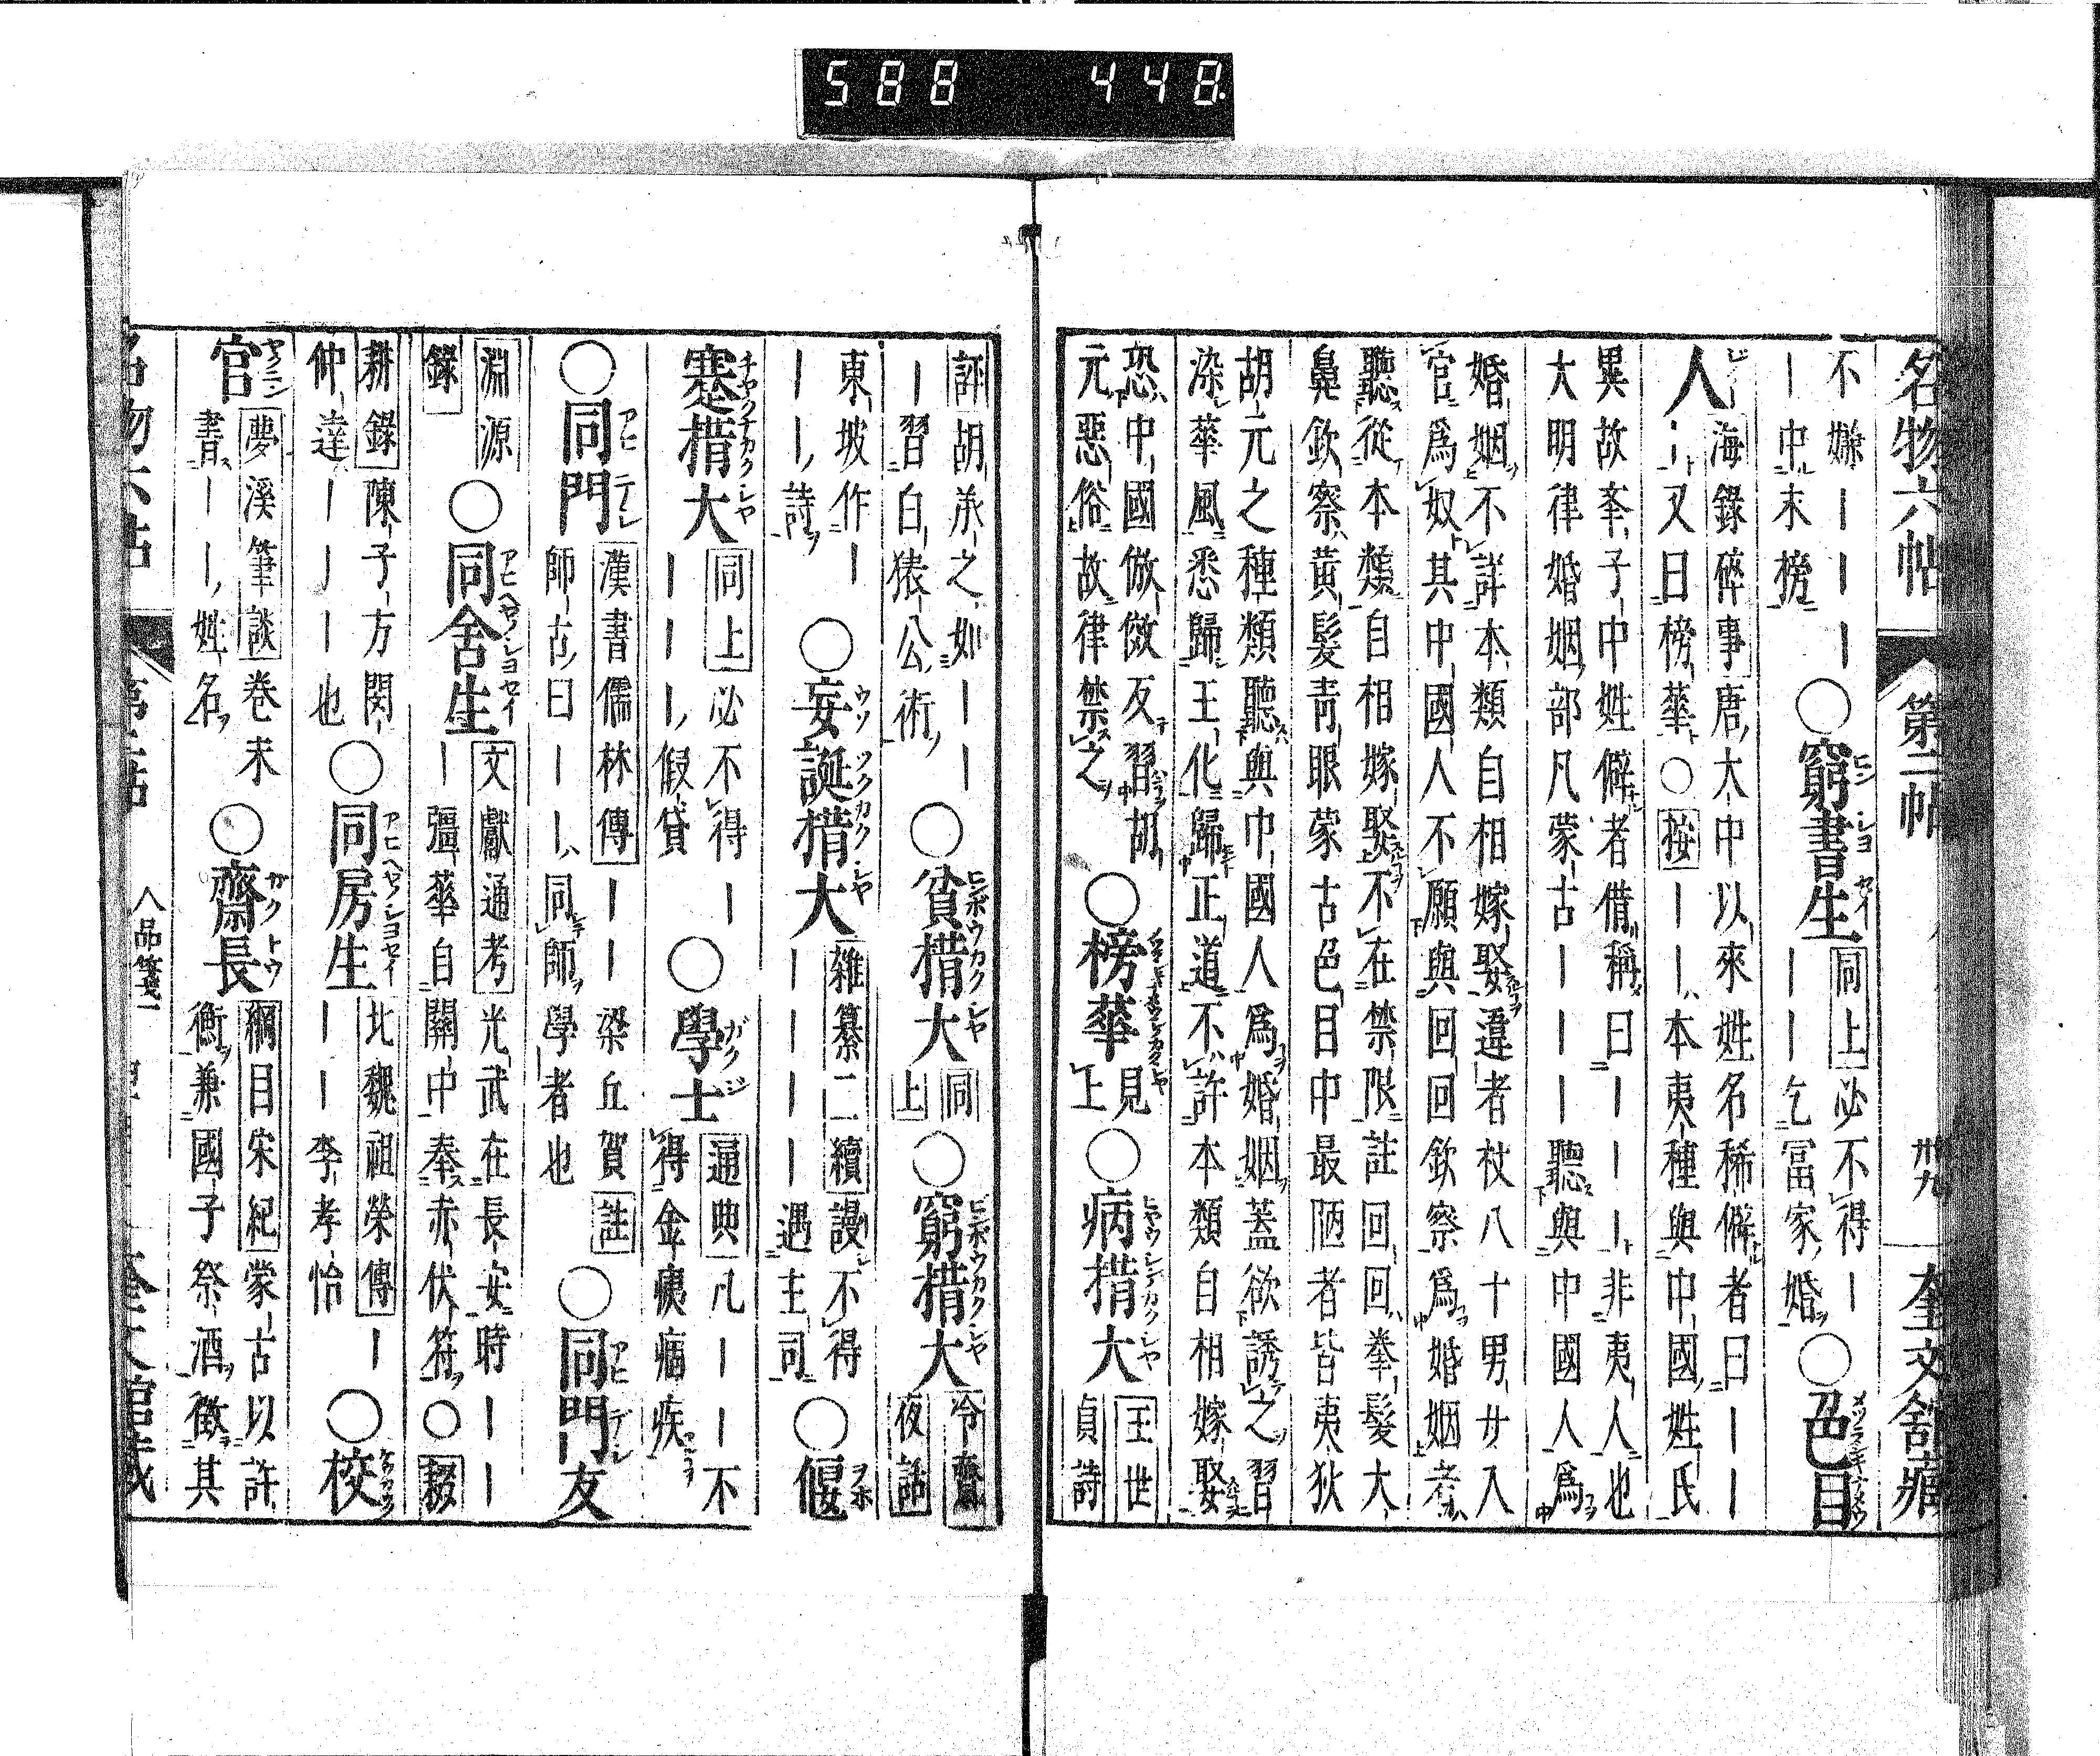 588 448
名物六帖 第二帖 卅九 奎文舘藏
不嫌｜｜｜
｜中末榜
○窮書生
同上必不得｜
｜｜乞冨家婚
○色目
人
海錄碎事唐大中以來姓名稀僻者曰｜｜
｜又曰榜華○按｜｜本夷種與中國姓氏
異故夆子中姓僻者借稱曰｜｜｜非夷人也
大明律婚姻部凡蒙古｜｜｜聽與中國人爲
婚姻不詳本類自相嫁娶違者杖八十男女入
官爲奴其中國人不願與回回欽察爲婚姻者
聽從本類自相嫁娶不在禁限註回回拳髮大
鼻欽察黃髮青眼蒙古色目中最陋者皆夷狄
胡元之種類聽與中國人爲婚姻蓋欲誘之習
染華風悉歸王化歸正道不許本類自相嫁娶
恐中國倣傚反習胡
元惡俗故律禁之
○榜華
見
上
○病措大
王世
貞詩
評胡承之如｜｜
｜習白猿公術
○貧措大
同
上
○窮措大
冷齋
夜話
東坡作｜
｜｜詩
○妄誕措大
雑纂二續謾不得
｜｜｜｜遇主司
○偃
蹇措大
同上必不得｜
｜｜｜假貸
○學士
通典凡｜｜不
得金痍痼疾
○同門
漢書儒林傳｜｜梁丘賀註
師古曰｜｜同師學者也
○同門友
淵源
錄
○同舍生
文獻通考光武在長安時｜｜
｜彊華自關中奉赤伏符○輟
耕錄陳子方関
仲達｜｜｜也
○同房生
北魏祖榮傳｜
｜｜李孝怡
○校
官
夢溪筆談卷末
書｜｜姓名
○齋長
綱目宋紀蒙古以許
衡兼國子祭酒徵其
人品箋一